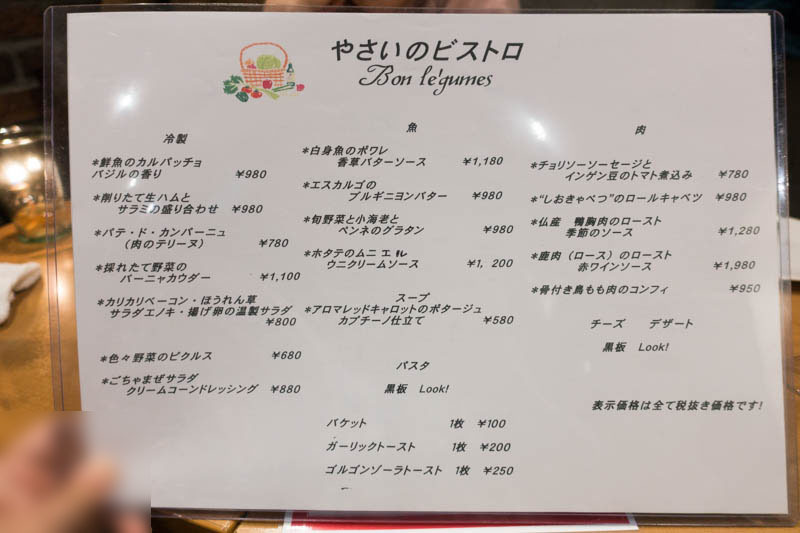 やさいのビストロ
Bon le'gumes
冷製
*鮮魚のカルパッチョ
バジルの香り ¥980
*削りたて生ハムと
サラミの盛り合わせ ¥980
*パテ・ド・カンパーニュ
(肉のテリーヌ) ¥780
*採れたて野菜の
バーニャカウダー ¥1,100
*カリカリベーコン・ほうれん草
サラダエノキ・揚げ卵の温製サラダ
¥800
*色々野菜のピクルス ¥680
*ごちゃまぜサラダ
クリームコーンドレッシング ¥880
魚
*白身魚のポワレ
香草バターソース ¥1,180
*エスカルゴの
ブルギニヨンバター ¥980
*旬野菜と小海老と
ペンネのグラタン ¥980
*ホタテのムニエル
ウニクリームソース ¥1,200
スープ
*アロマレッドキャロットのポタージュ
カプチーノ仕立て ¥580
パスタ
黒板 Look!
バケット 1枚 ¥100
ガーリックトースト 1枚 ¥200
ゴルゴンゾーラトースト 1枚 ¥250
肉
*チョリソーソーセージと
インゲン豆のトマト煮込み ¥780
*“しおきゃべつ”のロールキャベツ ¥980
*仏産 鴨胸肉のロースト
季節のソース ¥1,280
*鹿肉(ロース)のロースト
赤ワインソース ¥1,980
*骨付き鳥もも肉のコンフィ ¥950
チーズ デザート
黒板 Look!
表示価格は全て税抜き価格です!